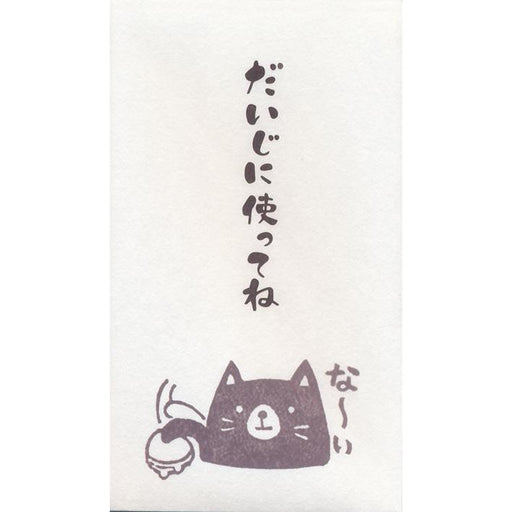 だいじに使ってね
な〜い